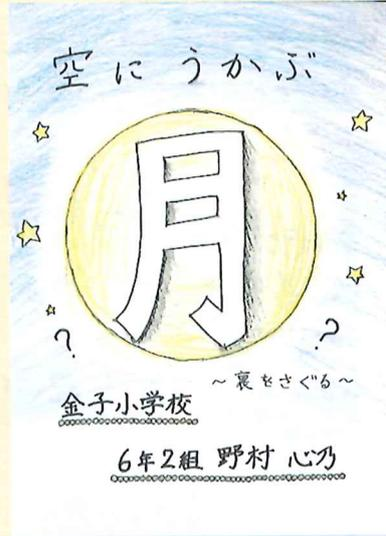 空にうかぶ
月
? ?
～裏をさぐる～
金子小学校
6年2組 野村 心乃